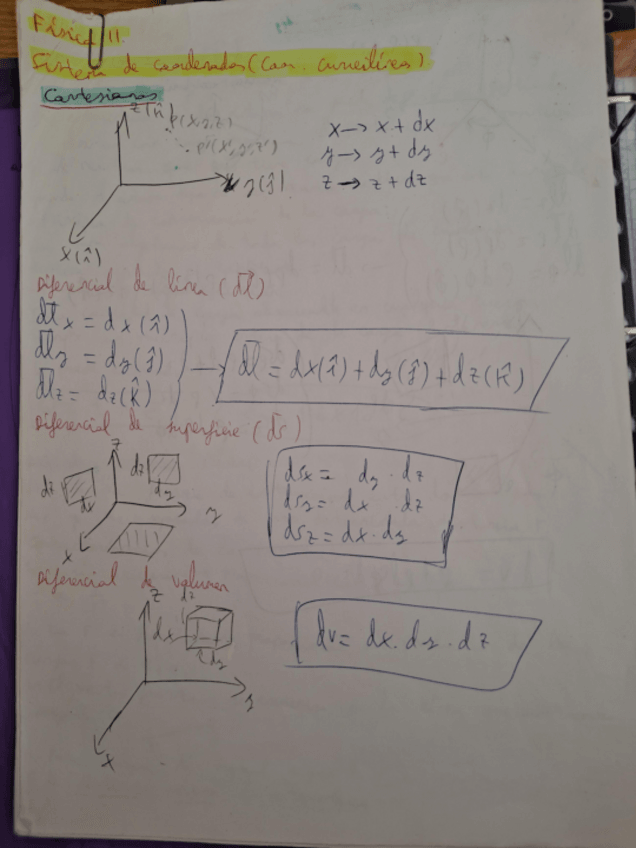 Física II.
Sistema de coordenadas (Coor. curvilíneas)
Cartesianas
z(k̂)
P(x,y,z)
P'(x',y',z')
y(ĵ)
x(î)
x → x + dx
y → y + dy
z → z + dz
Diferencial de línea (d̅l)
d̅l x = dx(î)
d̅l y = dy(ĵ)
d̅l z = dz(k̂)
d̅l = dx(î) + dy(ĵ) + dz(k̂)
Diferencial de superficie (d̅s)
z
dz
dy
dz
dx
y
x
dsx = dy · dz
dsy = dx · dz
dsz = dx · dy
Diferencial de volumen
z
dz
dx
dy
y
x
dv = dx · dy · dz